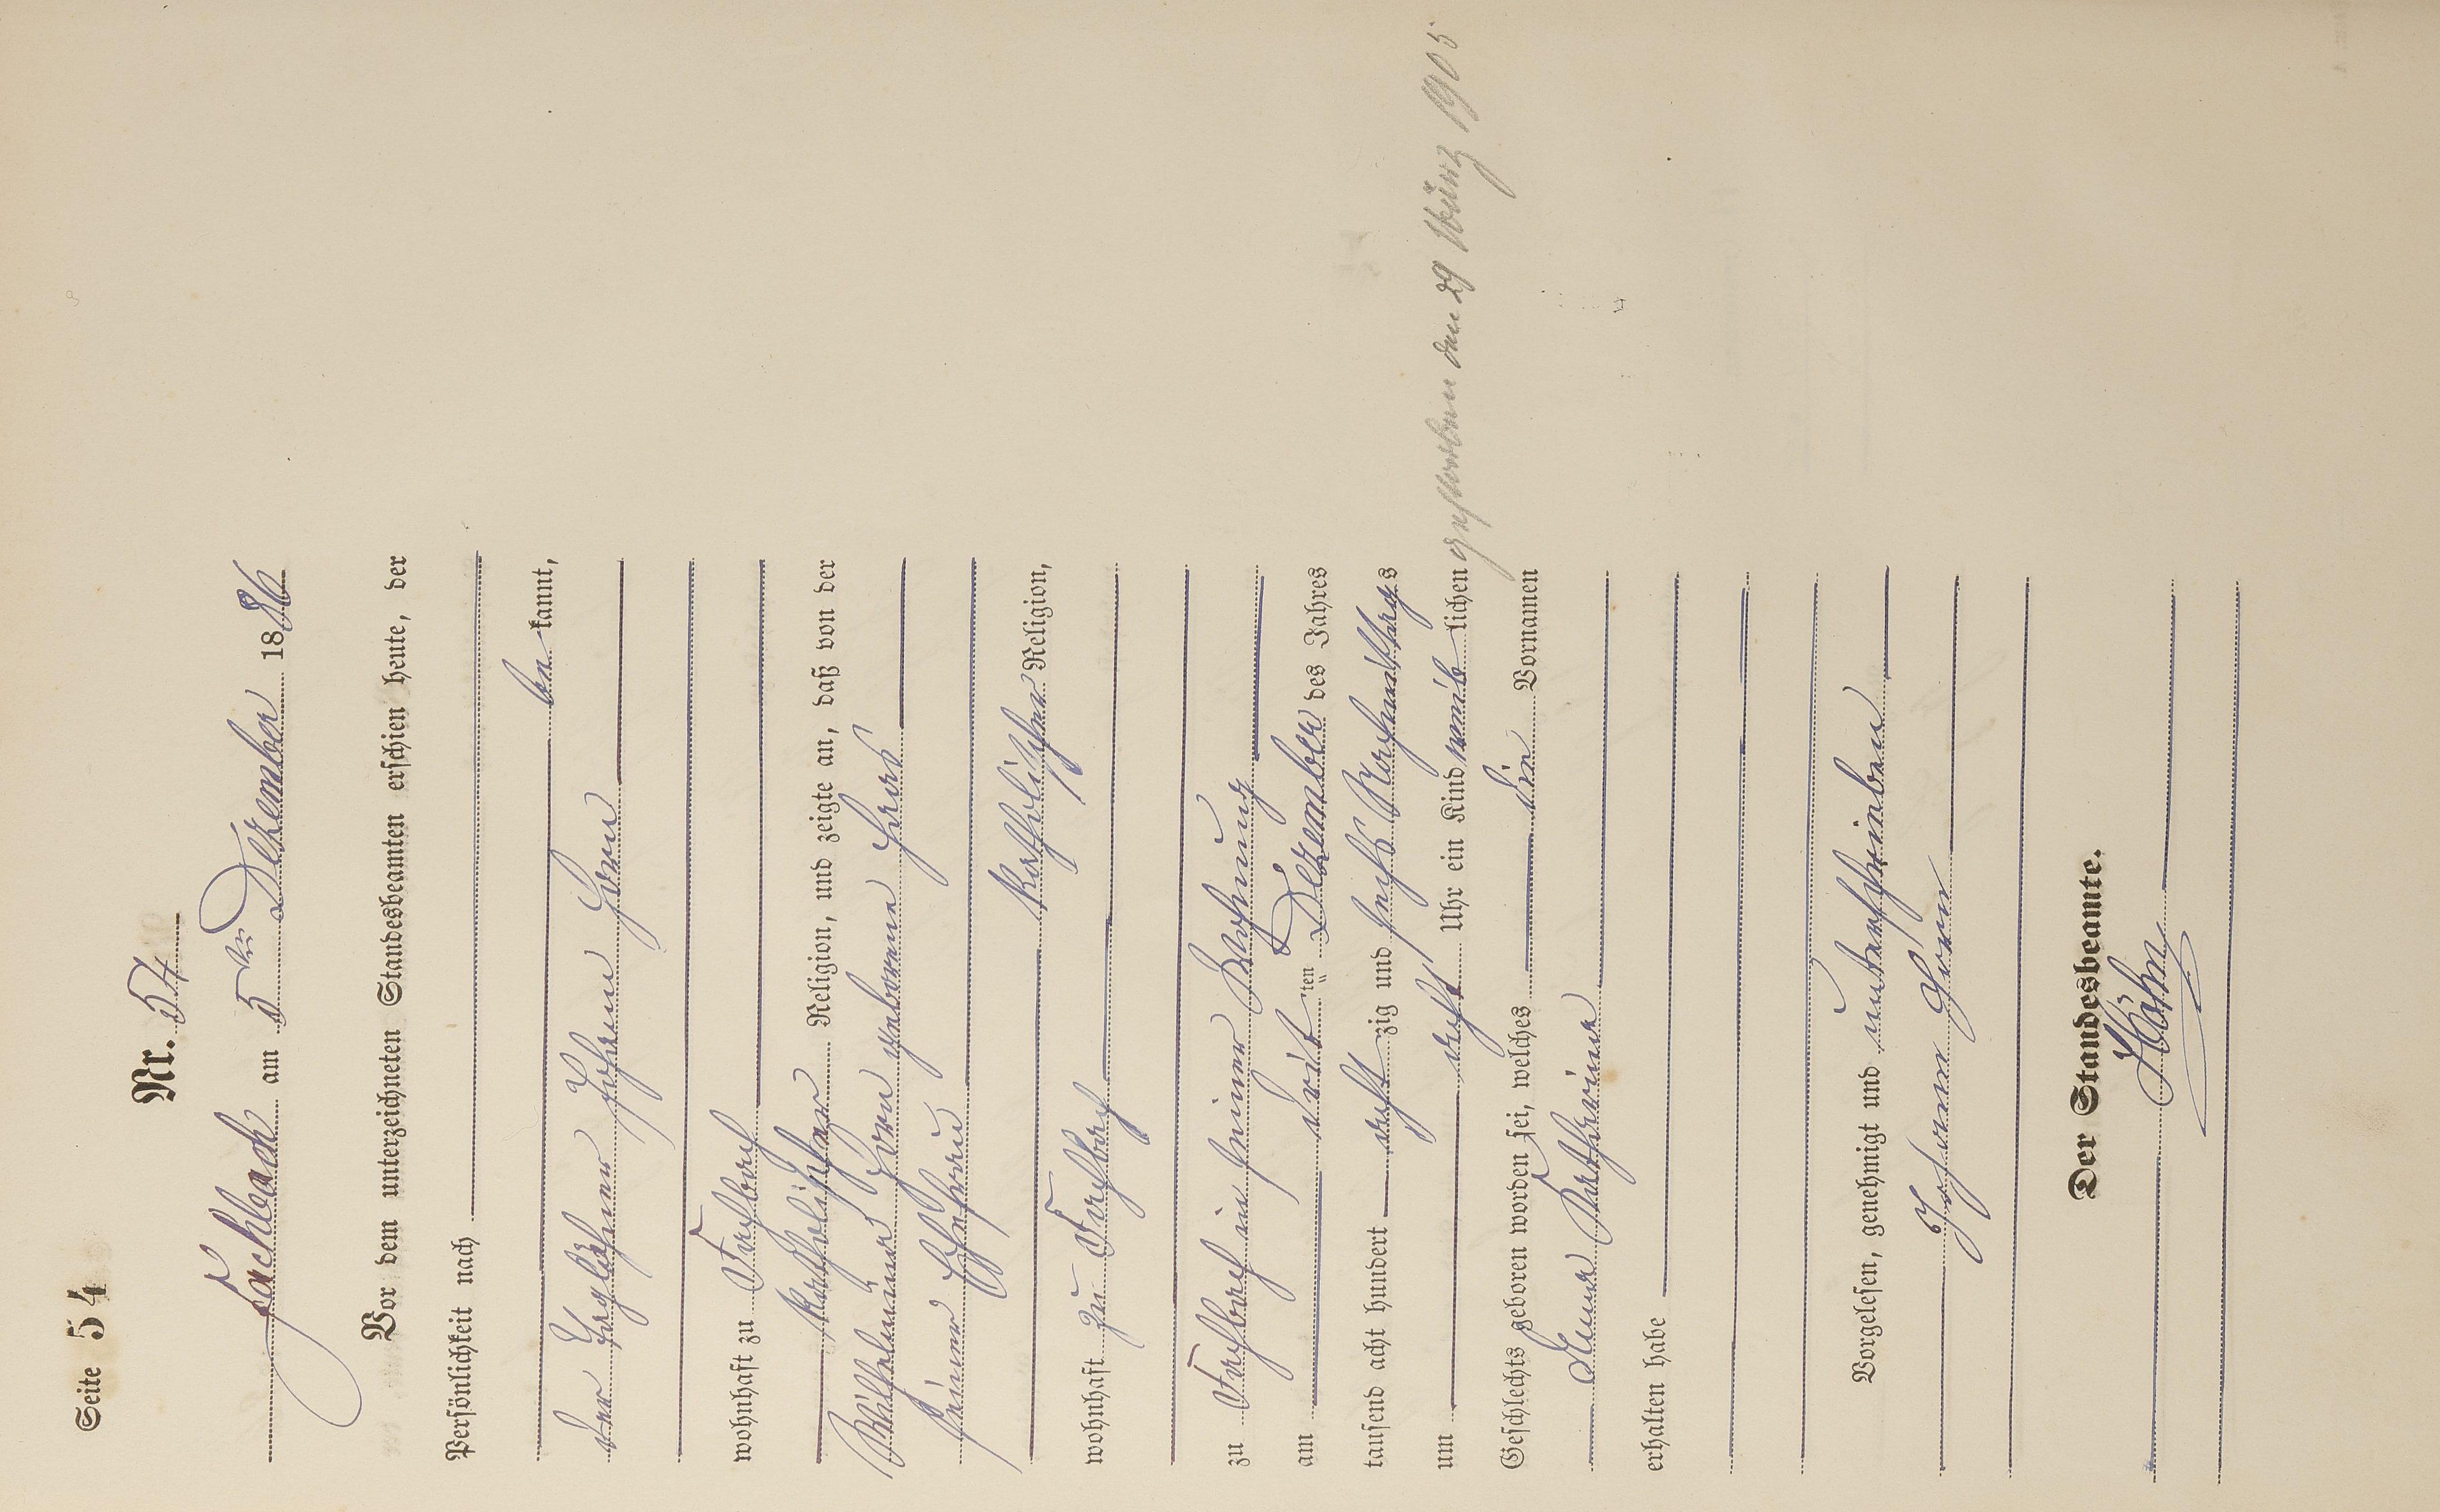 Seite 54
Nr. 54
Fachbach am 5ten Dezember 1886
Vor dem unterzeichneten Standesbeamten erschien heute, der
Persönlichkeit nach
be kannt,
der Taglöhner Johann Horn
wohnhaft zu Fachbach
katholischer Religion, und zeigte an, daß von der
Wilhelmina Horn geborene
seiner Ehefrau
katholischer Religion,
wohnhaft zu Fachbach
zu Fachbach in seiner Wohnung
am dritten Dezember des Jahres
tausend acht hundert acht zig und sechs Nachmittags
um acht Uhr ein Kind weib lichen
gestorben den 29 März 1905
Geschlechts geboren worden sei, welches die Vornamen
Anna Katharina
erhalten habe
Vorgelesen, genehmigt und unterschrieben
Johann Horn
Der Standesbeamte.